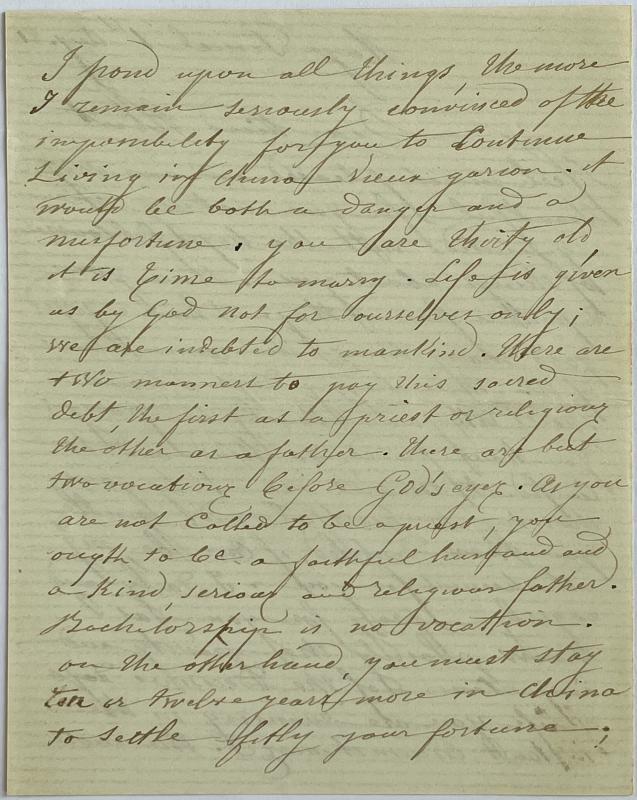 I pond upon all things, the more
I remain seriously convinced of the
impossibility for you to Continue
Living in China Vieux garson. it
would be both a danger and a
misfortune. you are thirty old,
it is time to marry. Life is given
us by God not for ourselves only;
we are indebted to mankind. There are
two manners to pay this sacred
debt, the first as a priest or religious
the other as a father. there are but
two vocations before God's eyes. As you
are not Called to be a priest, you
ought to be a faithful husband and
a Kind, serious and religious father.
Bachelorship is no vocation.
on the other hand, you must stay
ten or twelve years more in China
to settle fitly your fortune.